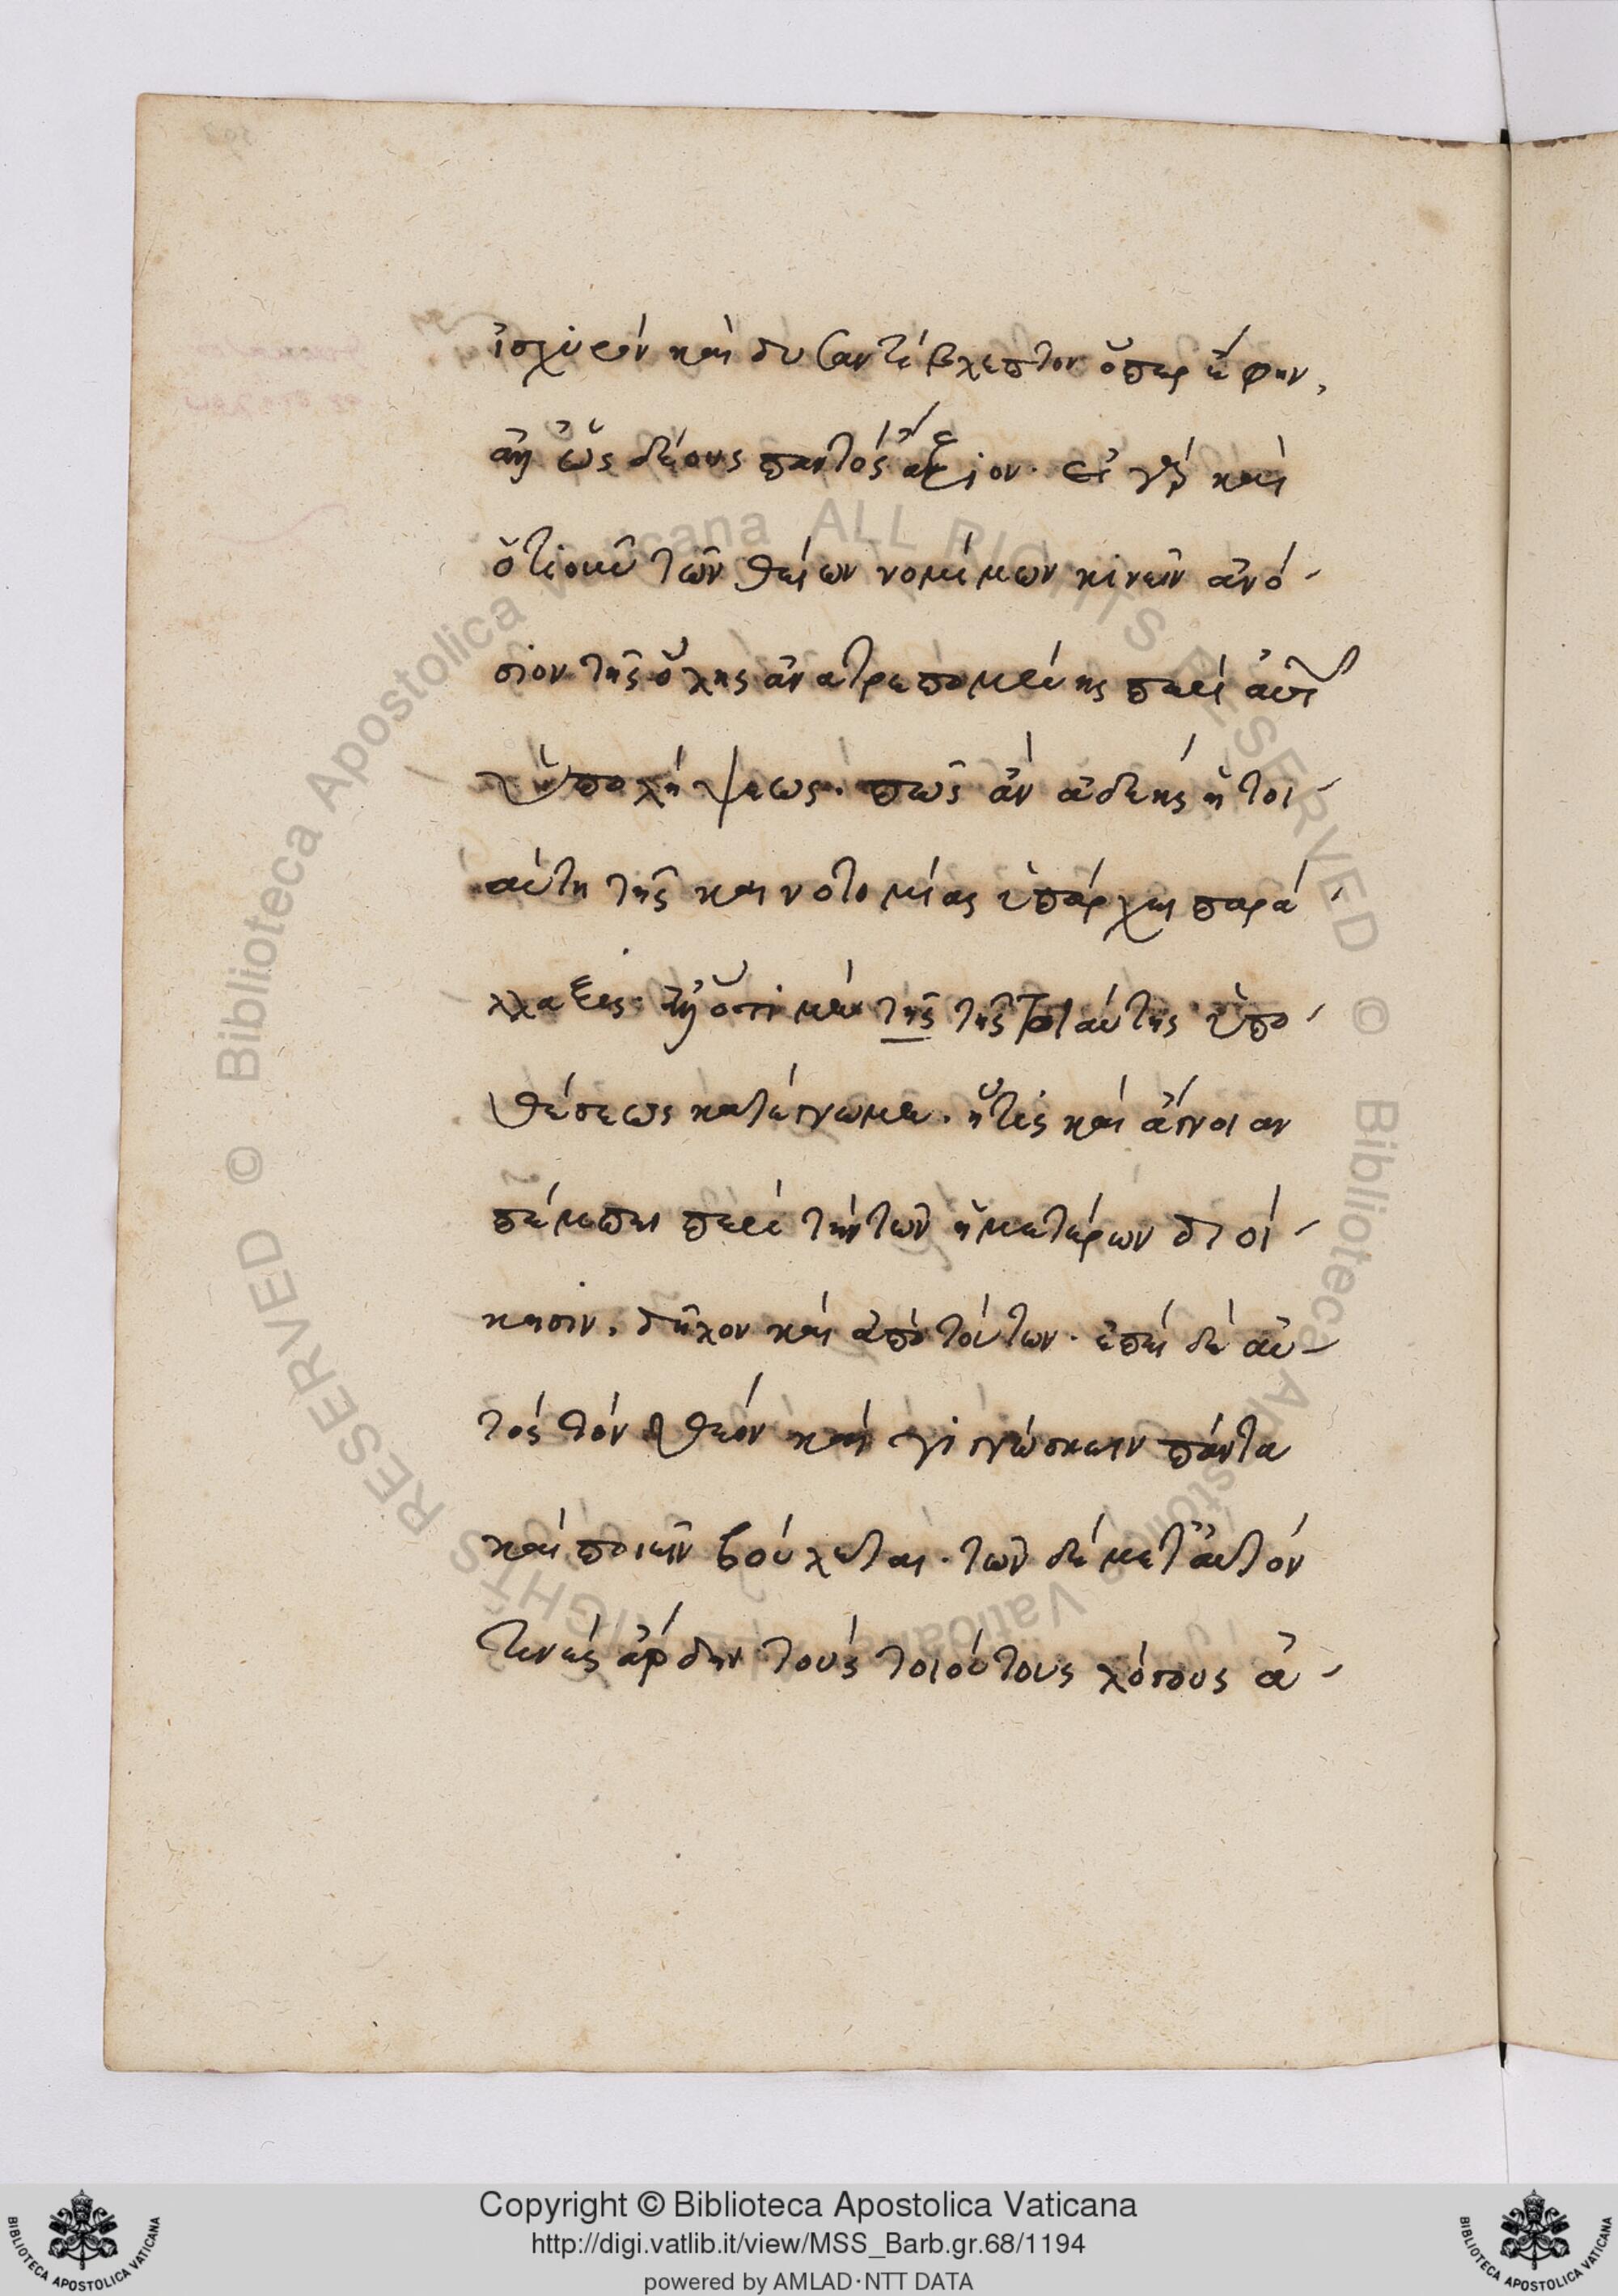 ἰσχυρὸν καὶ δυσαντίβλεπτον ὅπερ ἔφην,
ἀλλ' ὡς δέους παντὸς ἄξιον. εἰ γὰρ καὶ
ὁτιοῦν τῶν θείων νομίμων κινεῖν ἀνό-
σιον τῆς ὅλης ἀνατρεπομένης περὶ αὐτ
ὑπολήψεως. πῶς ἂν ἀδεὴς ἡ τοι-
αύτη τῆς καινοτομίας ὑπάρχει παρά-
λλαξις. ὅτι μὲν τῆς τῆς τοιαύτης ὑπο-
θέσεως κατέγνωμεν. ἥτις καὶ ἄγνοιαν
πέμπει περὶ τὴν τῶν ἡμετέρων διοί-
κησιν, δῆλον καὶ ἀπὸ τούτων. ἐπεὶ δὲ αὐ-
τὸς τὸν θεὸν καὶ γιγνώσκειν πάντα
καὶ ποιεῖν βούλεται. τῶν δὲ μετ' αὐτὸν
τινὲς ἄρδην τοὺς τοιούτους λόγους ἀ-
Copyright © Biblioteca Apostolica Vaticana
http://digi.vatlib.it/view/MSS_Barb.gr.68/1194
powered by AMLAD·NTT DATA
BIBLIOTECA APOSTOLICA VATICANA
BIBLIOTECA APOSTOLICA VATICANA